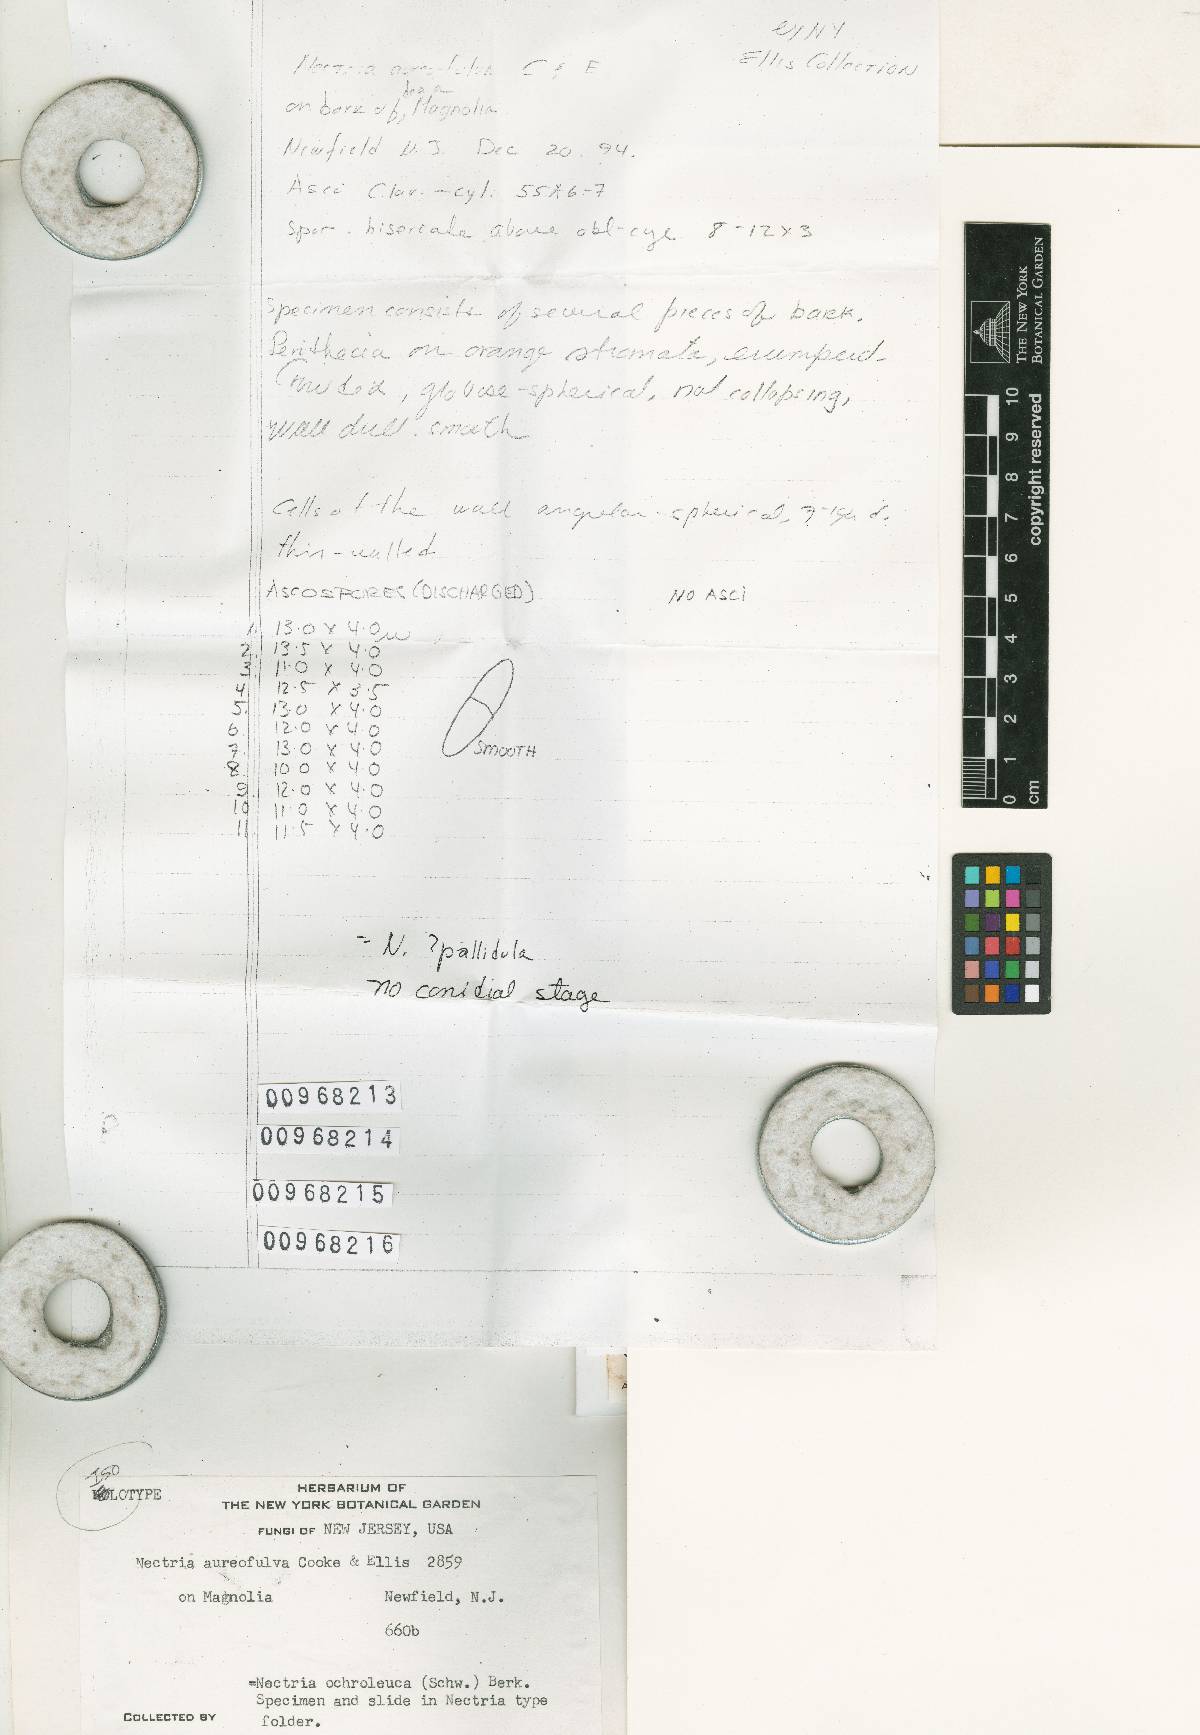 @ NY
Ellis Collection
Nectria aureofulva C & E
dead
on bark of Magnolia
Newfield N.J. Dec 20. 94.
Asci Clav.-cyl. 55x6-7
Spor. biseriate above obl-cyl 8-12x3
Specimen consists of several pieces of bark.
Perithecia on orange stromata, erumpent-
globose-spherical, not collapsing,
wall dull. smooth
Cells of the wall angular-spherical,
thin-walled
ASCOSPORES (DISCHARGED) NO ASCI
1. 13.0 x 4.0 u
2. 13.5 x 4.0
3. 11.0 x 4.0
4. 12.5 x 3.5
5. 13.0 x 4.0
6. 12.0 x 4.0
7. 13.0 x 4.0
8. 10.0 x 4.0
9. 12.0 x 4.0
10. 11.0 x 4.0
11. 11.5 x 4.0
SMOOTH
= N. ?pallidula
no conidial stage
00968213
00968214
00968215
00968216
THE NEW YORK
BOTANICAL GARDEN
0 1 2 3 4 5 6 7 8 9 10
cm copyright reserved
ISO
HOLOTYPE
HERBARIUM OF
THE NEW YORK BOTANICAL GARDEN
FUNGI OF NEW JERSEY, USA
Nectria aureofulva Cooke & Ellis 2859
on Magnolia Newfield, N.J.
660b
=Nectria ochroleuca (Schw.) Berk.
Specimen and slide in Nectria type
folder.
COLLECTED BY